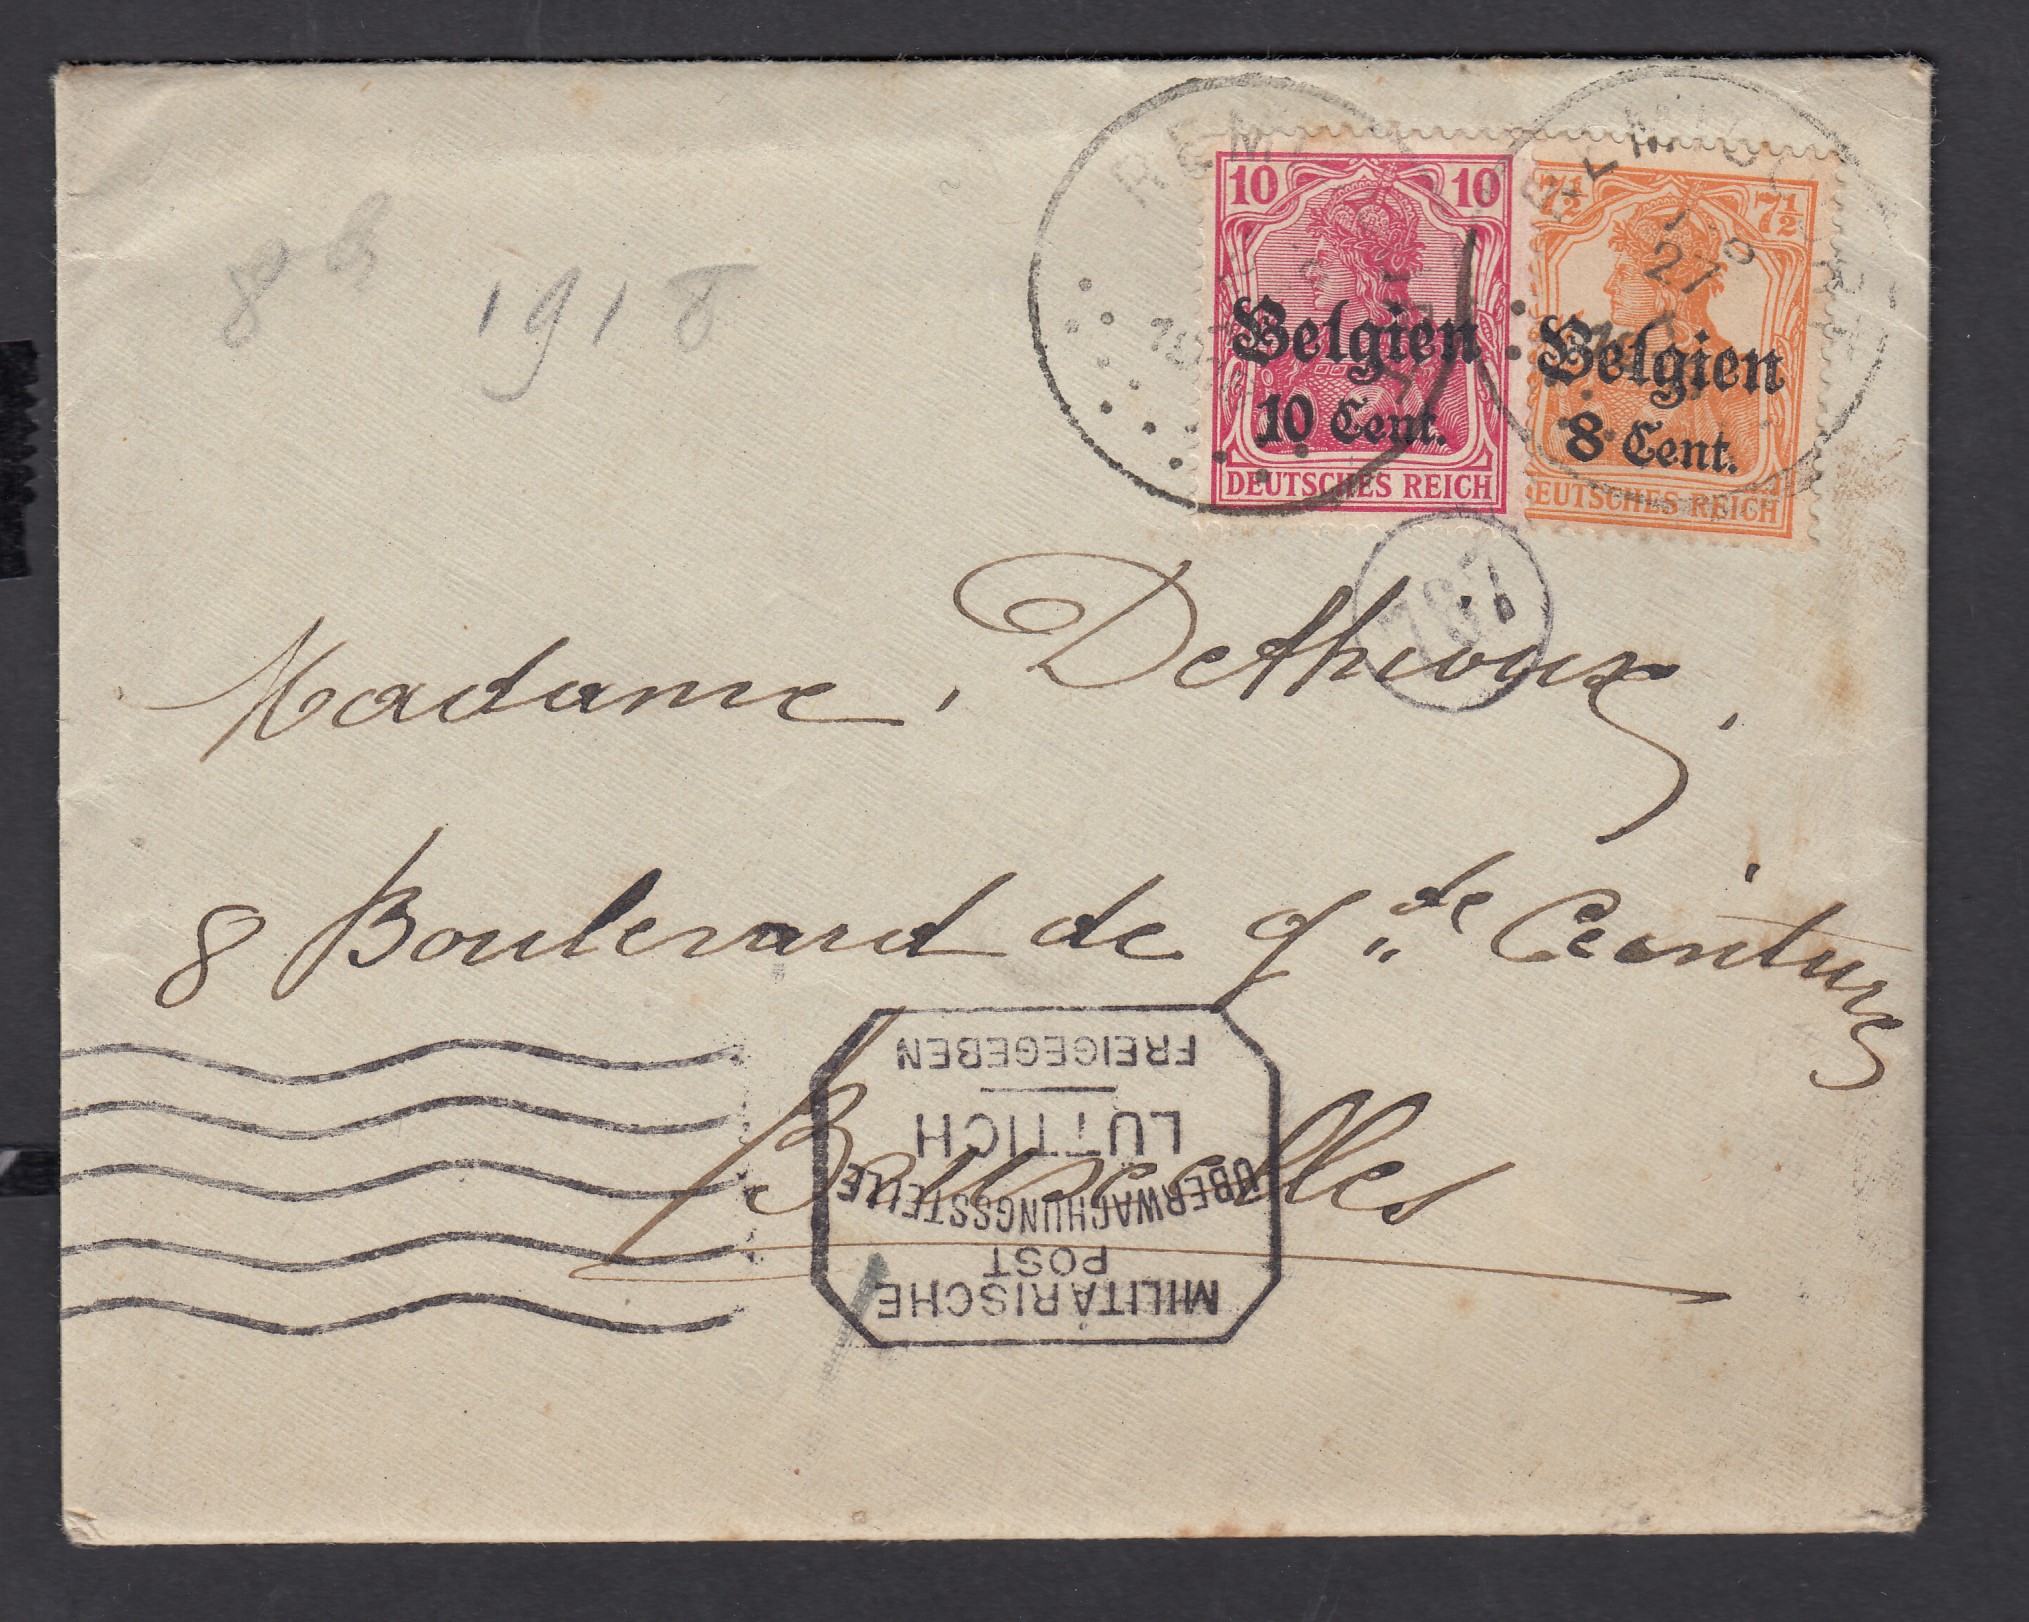 8
1918
REM
27
10 10
Belgien
10 Cent.
DEUTSCHES REICH
7½ 7½
Belgien
8 Cent.
EUTSCHES REICH
787
Madame Dethioux,
8 Boulevard de gde Ceinture
Bruxelles
MILITÄRISCHE
POST
ÜBERWACHUNGSSTELLE
LÜTTICH
FREIGEGEBEN